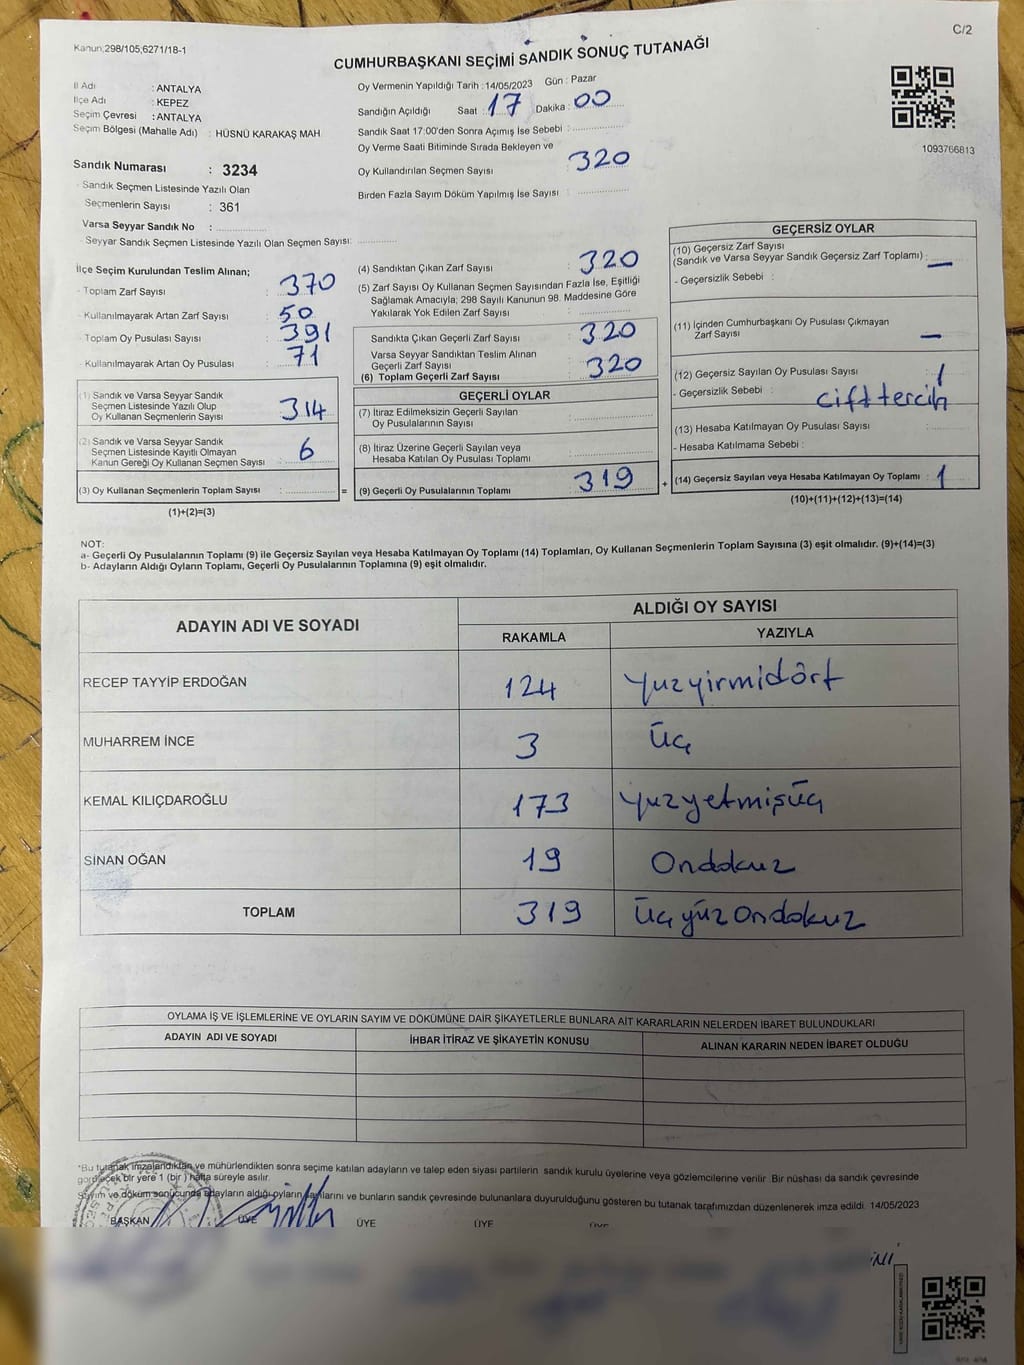 Kanun;298/105;6271/18-1
C/2
CUMHURBAŞKANI SEÇİMİ SANDIK SONUÇ TUTANAĞI
İl Adı : ANTALYA
İlçe Adı : KEPEZ
Seçim Çevresi : ANTALYA
Seçim Bölgesi (Mahalle Adı) : HÜSNÜ KARAKAŞ MAH
Sandık Numarası : 3234
- Sandık Seçmen Listesinde Yazılı Olan
Seçmenlerin Sayısı : 361
Varsa Seyyar Sandık No :
- Seyyar Sandık Seçmen Listesinde Yazılı Olan Seçmen Sayısı:
Oy Vermenin Yapıldığı Tarih : 14/05/2023 Gün : Pazar
Sandığın Açıldığı Saat : 17 Dakika : 00
Sandık Saat 17:00'den Sonra Açımış İse Sebebi :
Oy Verme Saati Bitiminde Sırada Bekleyen ve
Oy Kullandırılan Seçmen Sayısı 320
Birden Fazla Sayım Döküm Yapılmış İse Sayısı :
1093766813
İlçe Seçim Kurulundan Teslim Alınan;
- Toplam Zarf Sayısı : 370
- Kullanılmayarak Artan Zarf Sayısı : 50
- Toplam Oy Pusulası Sayısı : 391
- Kullanılmayarak Artan Oy Pusulası : 71
(1) Sandık ve Varsa Seyyar Sandık
Seçmen Listesinde Yazılı Olup
Oy Kullanan Seçmenlerin Sayısı : 314
(2) Sandık ve Varsa Seyyar Sandık
Seçmen Listesinde Kayıtlı Olmayan
Kanun Gereği Oy Kullanan Seçmen Sayısı : 6
(3) Oy Kullanan Seçmenlerin Toplam Sayısı : =
(1)+(2)=(3)
(4) Sandıktan Çıkan Zarf Sayısı : 320
(5) Zarf Sayısı Oy Kullanan Seçmen Sayısından Fazla İse, Eşitliği
Sağlamak Amacıyla; 298 Sayılı Kanunun 98. Maddesine Göre
Yakılarak Yok Edilen Zarf Sayısı :
Sandıkta Çıkan Geçerli Zarf Sayısı : 320
Varsa Seyyar Sandıktan Teslim Alınan
Geçerli Zarf Sayısı :
(6) Toplam Geçerli Zarf Sayısı : 320
GEÇERLİ OYLAR
(7) İtiraz Edilmeksizin Geçerli Sayılan
Oy Pusulalarının Sayısı :
(8) İtiraz Üzerine Geçerli Sayılan veya
Hesaba Katılan Oy Pusulası Toplamı :
(9) Geçerli Oy Pusulalarının Toplamı : 319 +
GEÇERSİZ OYLAR
(10) Geçersiz Zarf Sayısı
(Sandık ve Varsa Seyyar Sandık Geçersiz Zarf Toplamı) : —
- Geçersizlik Sebebi :
(11) İçinden Cumhurbaşkanı Oy Pusulası Çıkmayan
Zarf Sayısı : —
(12) Geçersiz Sayılan Oy Pusulası Sayısı : 1
- Geçersizlik Sebebi : çift tercih
(13) Hesaba Katılmayan Oy Pusulası Sayısı :
- Hesaba Katılmama Sebebi :
(14) Geçersiz Sayılan veya Hesaba Katılmayan Oy Toplamı : 1
(10)+(11)+(12)+(13)=(14)
NOT:
a- Geçerli Oy Pusulalarının Toplamı (9) ile Geçersiz Sayılan veya Hesaba Katılmayan Oy Toplamı (14) Toplamları, Oy Kullanan Seçmenlerin Toplam Sayısına (3) eşit olmalıdır. (9)+(14)=(3)
b- Adayların Aldığı Oyların Toplamı, Geçerli Oy Pusulalarının Toplamına (9) eşit olmalıdır.
ADAYIN ADI VE SOYADI ALDIĞI OY SAYISI
RAKAMLA YAZIYLA
RECEP TAYYİP ERDOĞAN 124 yuzyirmidört
MUHARREM İNCE 3 üç
KEMAL KILIÇDAROĞLU 173 yuzyetmişüç
SİNAN OĞAN 19 Ondokuz
TOPLAM 319 üçyüzOndokuz
OYLAMA İŞ VE İŞLEMLERİNE VE OYLARIN SAYIM VE DÖKÜMÜNE DAİR ŞİKAYETLERLE BUNLARA AİT KARARLARIN NELERDEN İBARET BULUNDUKLARI
ADAYIN ADI VE SOYADI İHBAR İTİRAZ VE ŞİKAYETİN KONUSU ALINAN KARARIN NEDEN İBARET OLDUĞU
*Bu tutanak imzalandıktan ve mühürlendikten sonra seçime katılan adayların ve talep eden siyasi partilerin sandık kurulu üyelerine veya gözlemcilerine verilir. Bir nüshası da sandık çevresinde
görülecek bir yere 1 (bir) hafta süreyle asılır.
Sayım ve döküm sonucunda adayların aldığı oyların sayılarını ve bunların sandık çevresinde bulunanlara duyurulduğunu gösteren bu tutanak tarafımızdan düzenlenerek imza edildi. 14/05/2023
BAŞKAN ÜYE ÜYE ÜYE ÜYE